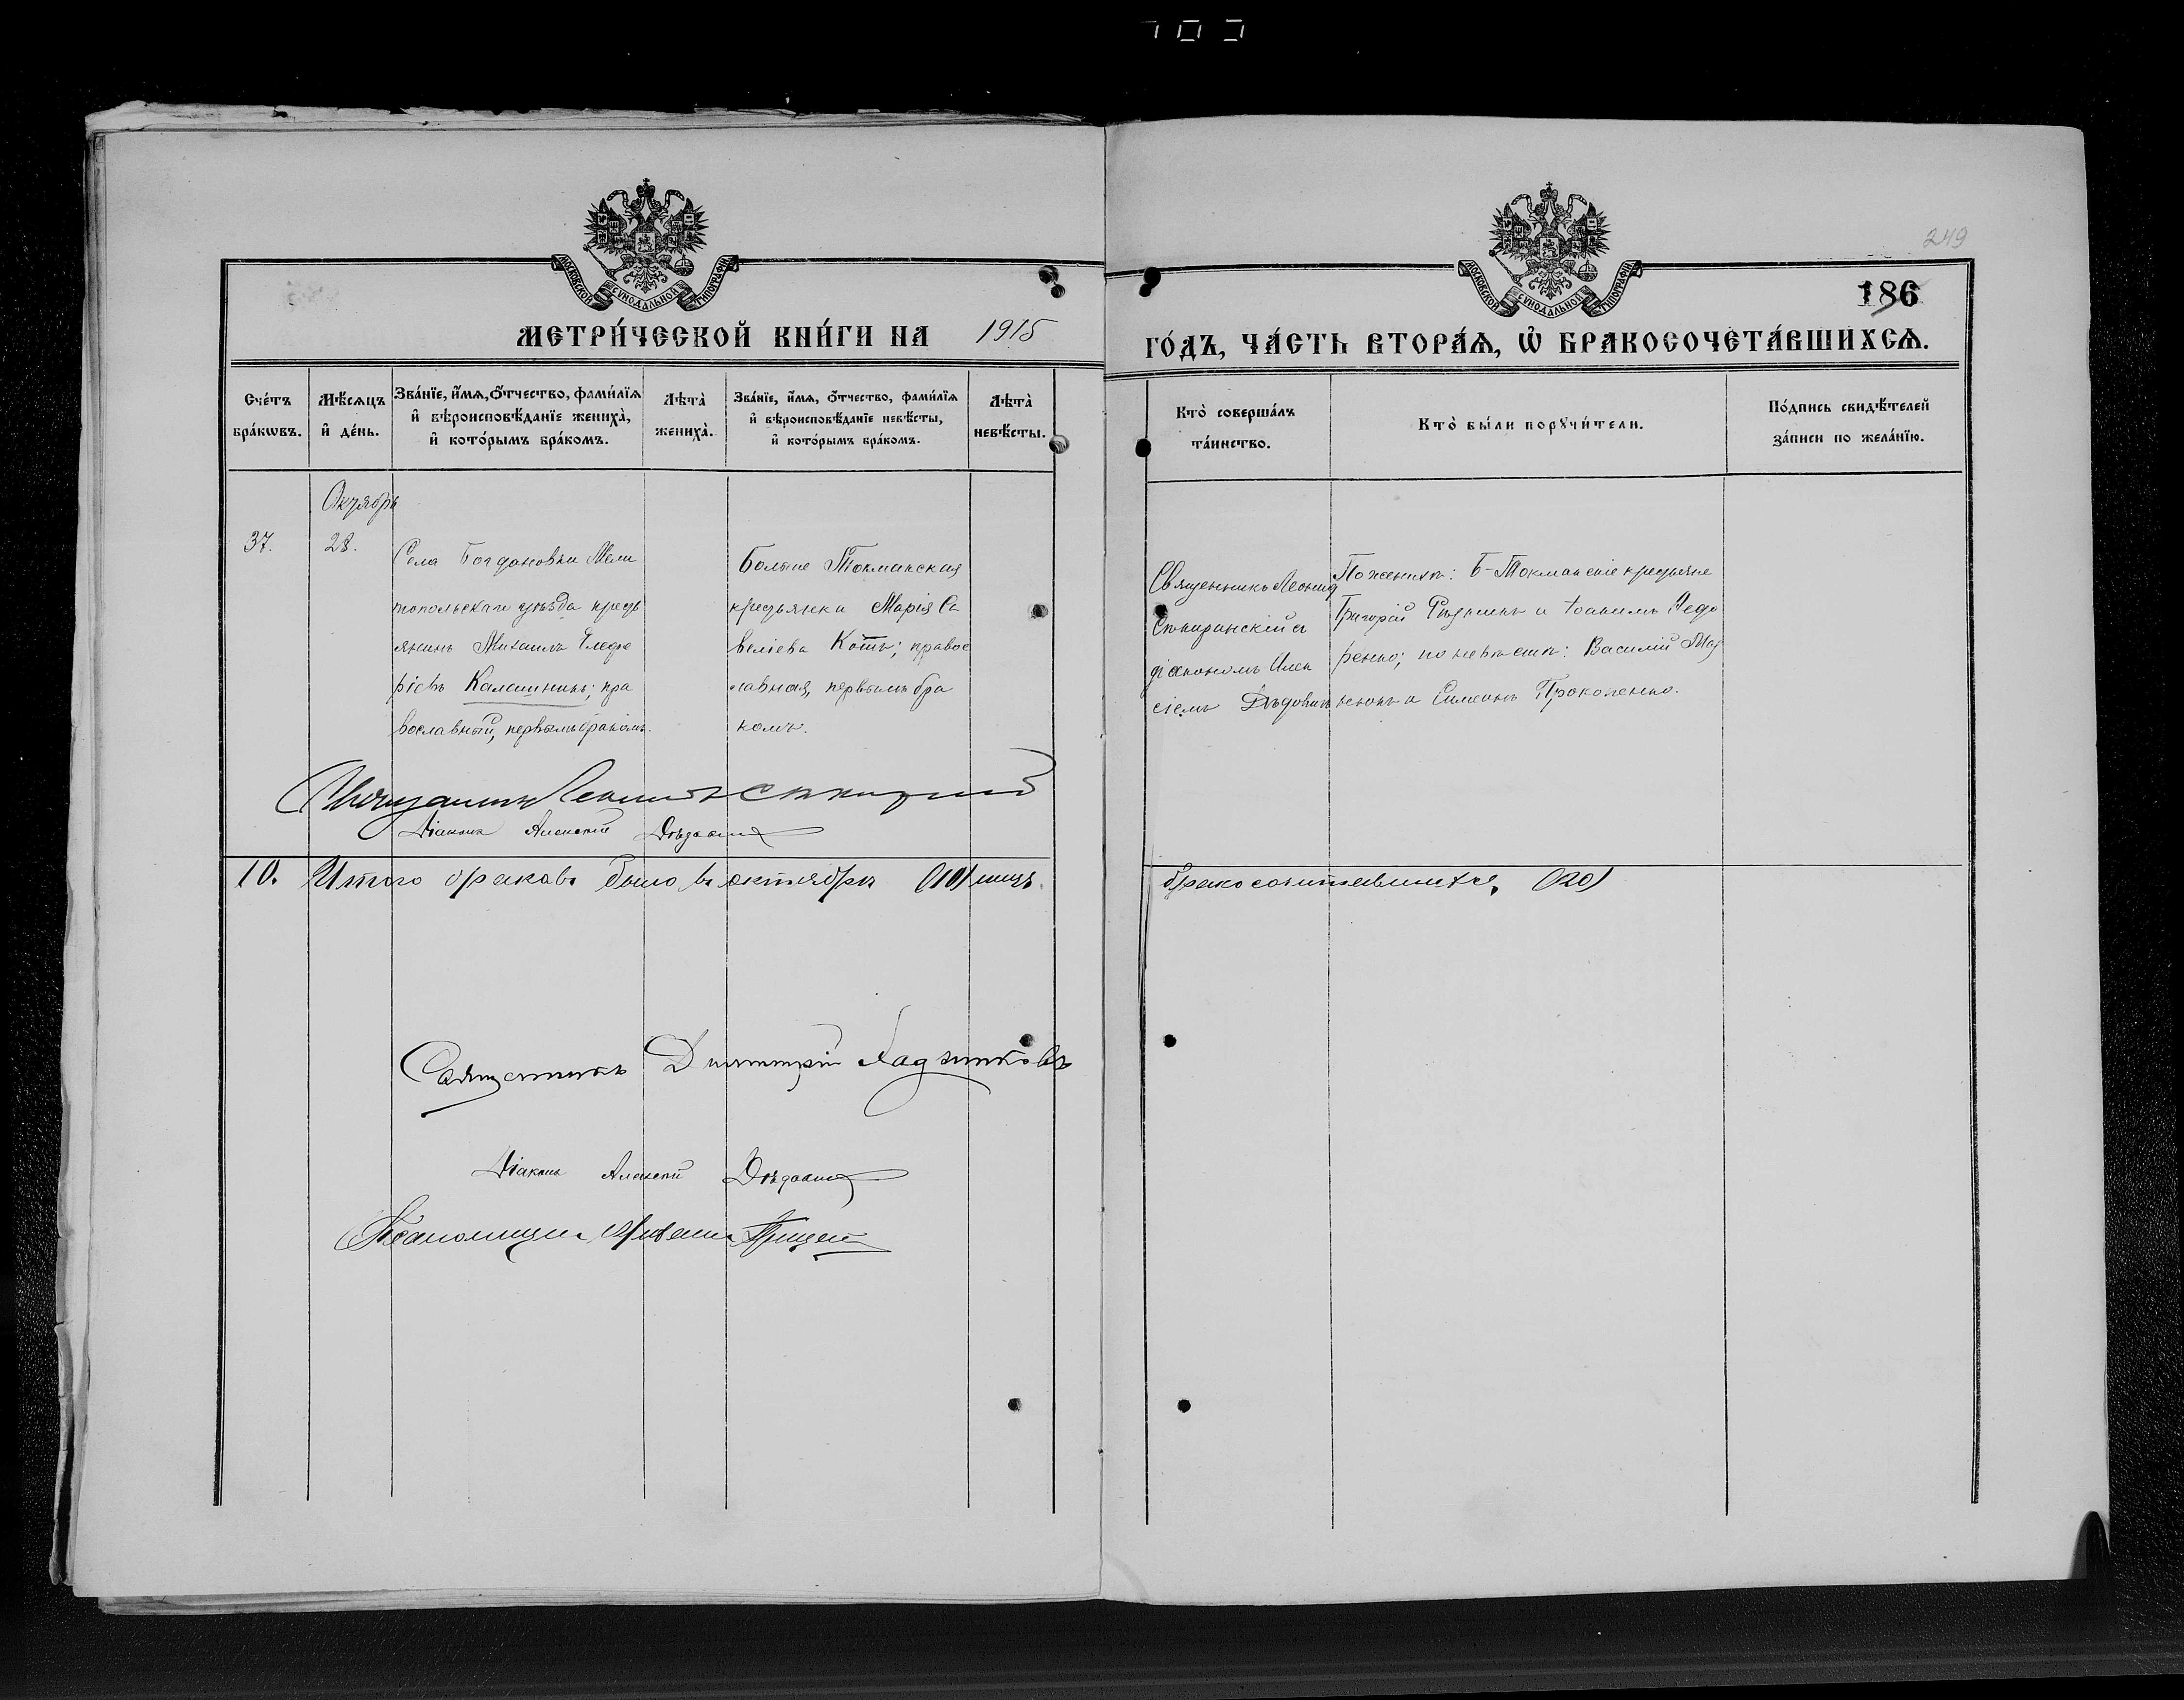 249
186
МОСКОВСКОЙ СѴНОДАЛЬНОЙ ТИПОГРАФІИ
МОСКОВСКОЙ СѴНОДАЛЬНОЙ ТИПОГРАФІИ
МЕТРИ́ЧЕСКОЙ КНИ́ГИ НА 1915 ГО́ДЪ, ЧА́СТЬ ВТОРА́Ѧ, Ѡ҆ БРАКОСОЧЕТА́ВШИХСѦ.
Сче́тъ бра́кѡвъ.
Мѣ́сѧцъ и҆ де́нь.
Зва́нїе, и҆́мѧ, ѻ҆́тчество, фами́лїѧ
и҆ вѣроисповѣ́данїе жениха̀,
и҆ кото́рымъ бра́комъ.
Лѣта̀ жениха̀.
Зва́нїе, и҆́мѧ, ѻ҆́тчество, фами́лїѧ
и҆ вѣроисповѣ́данїе невѣ́сты,
и҆ кото́рымъ бра́комъ.
Лѣта̀ невѣ́сты.
Кто̀ соверша́лъ
та́инство.
Кто̀ бы́ли порꙋчи́тели.
По́дпись свидѣ́телей
за́писи по жела́нїю.
Октябрь
37.
28.
Села Богдановки Мели
топольскаго уѣзда кресть
янинъ Михаилъ
Калашникъ; пра
вославный, первымъ бракомъ.
Больше Токмакская
крестьянка Марія Са
веліева Котъ; правос
лавная, первымъ бра
комъ.
Священникъ Леонид
Снѣгиранскій
діакономъ Алек
сіемъ Дѣдовичъ
По женихѣ: Б-Токмакскіе крестьяне
Григорій и Іоакимъ Федо
ренко; по невѣстѣ: Василій
и Симеонъ Прокопенко.
Священникъ Леонидъ
Діаконъ Алексій Дѣдовичъ
10. Итого браковъ было въ октябрѣ (10) лицъ бракосочетавшихся (20)
Священникъ Димитрій
Діаконъ Алексій Дѣдовичъ
Псаломщикъ